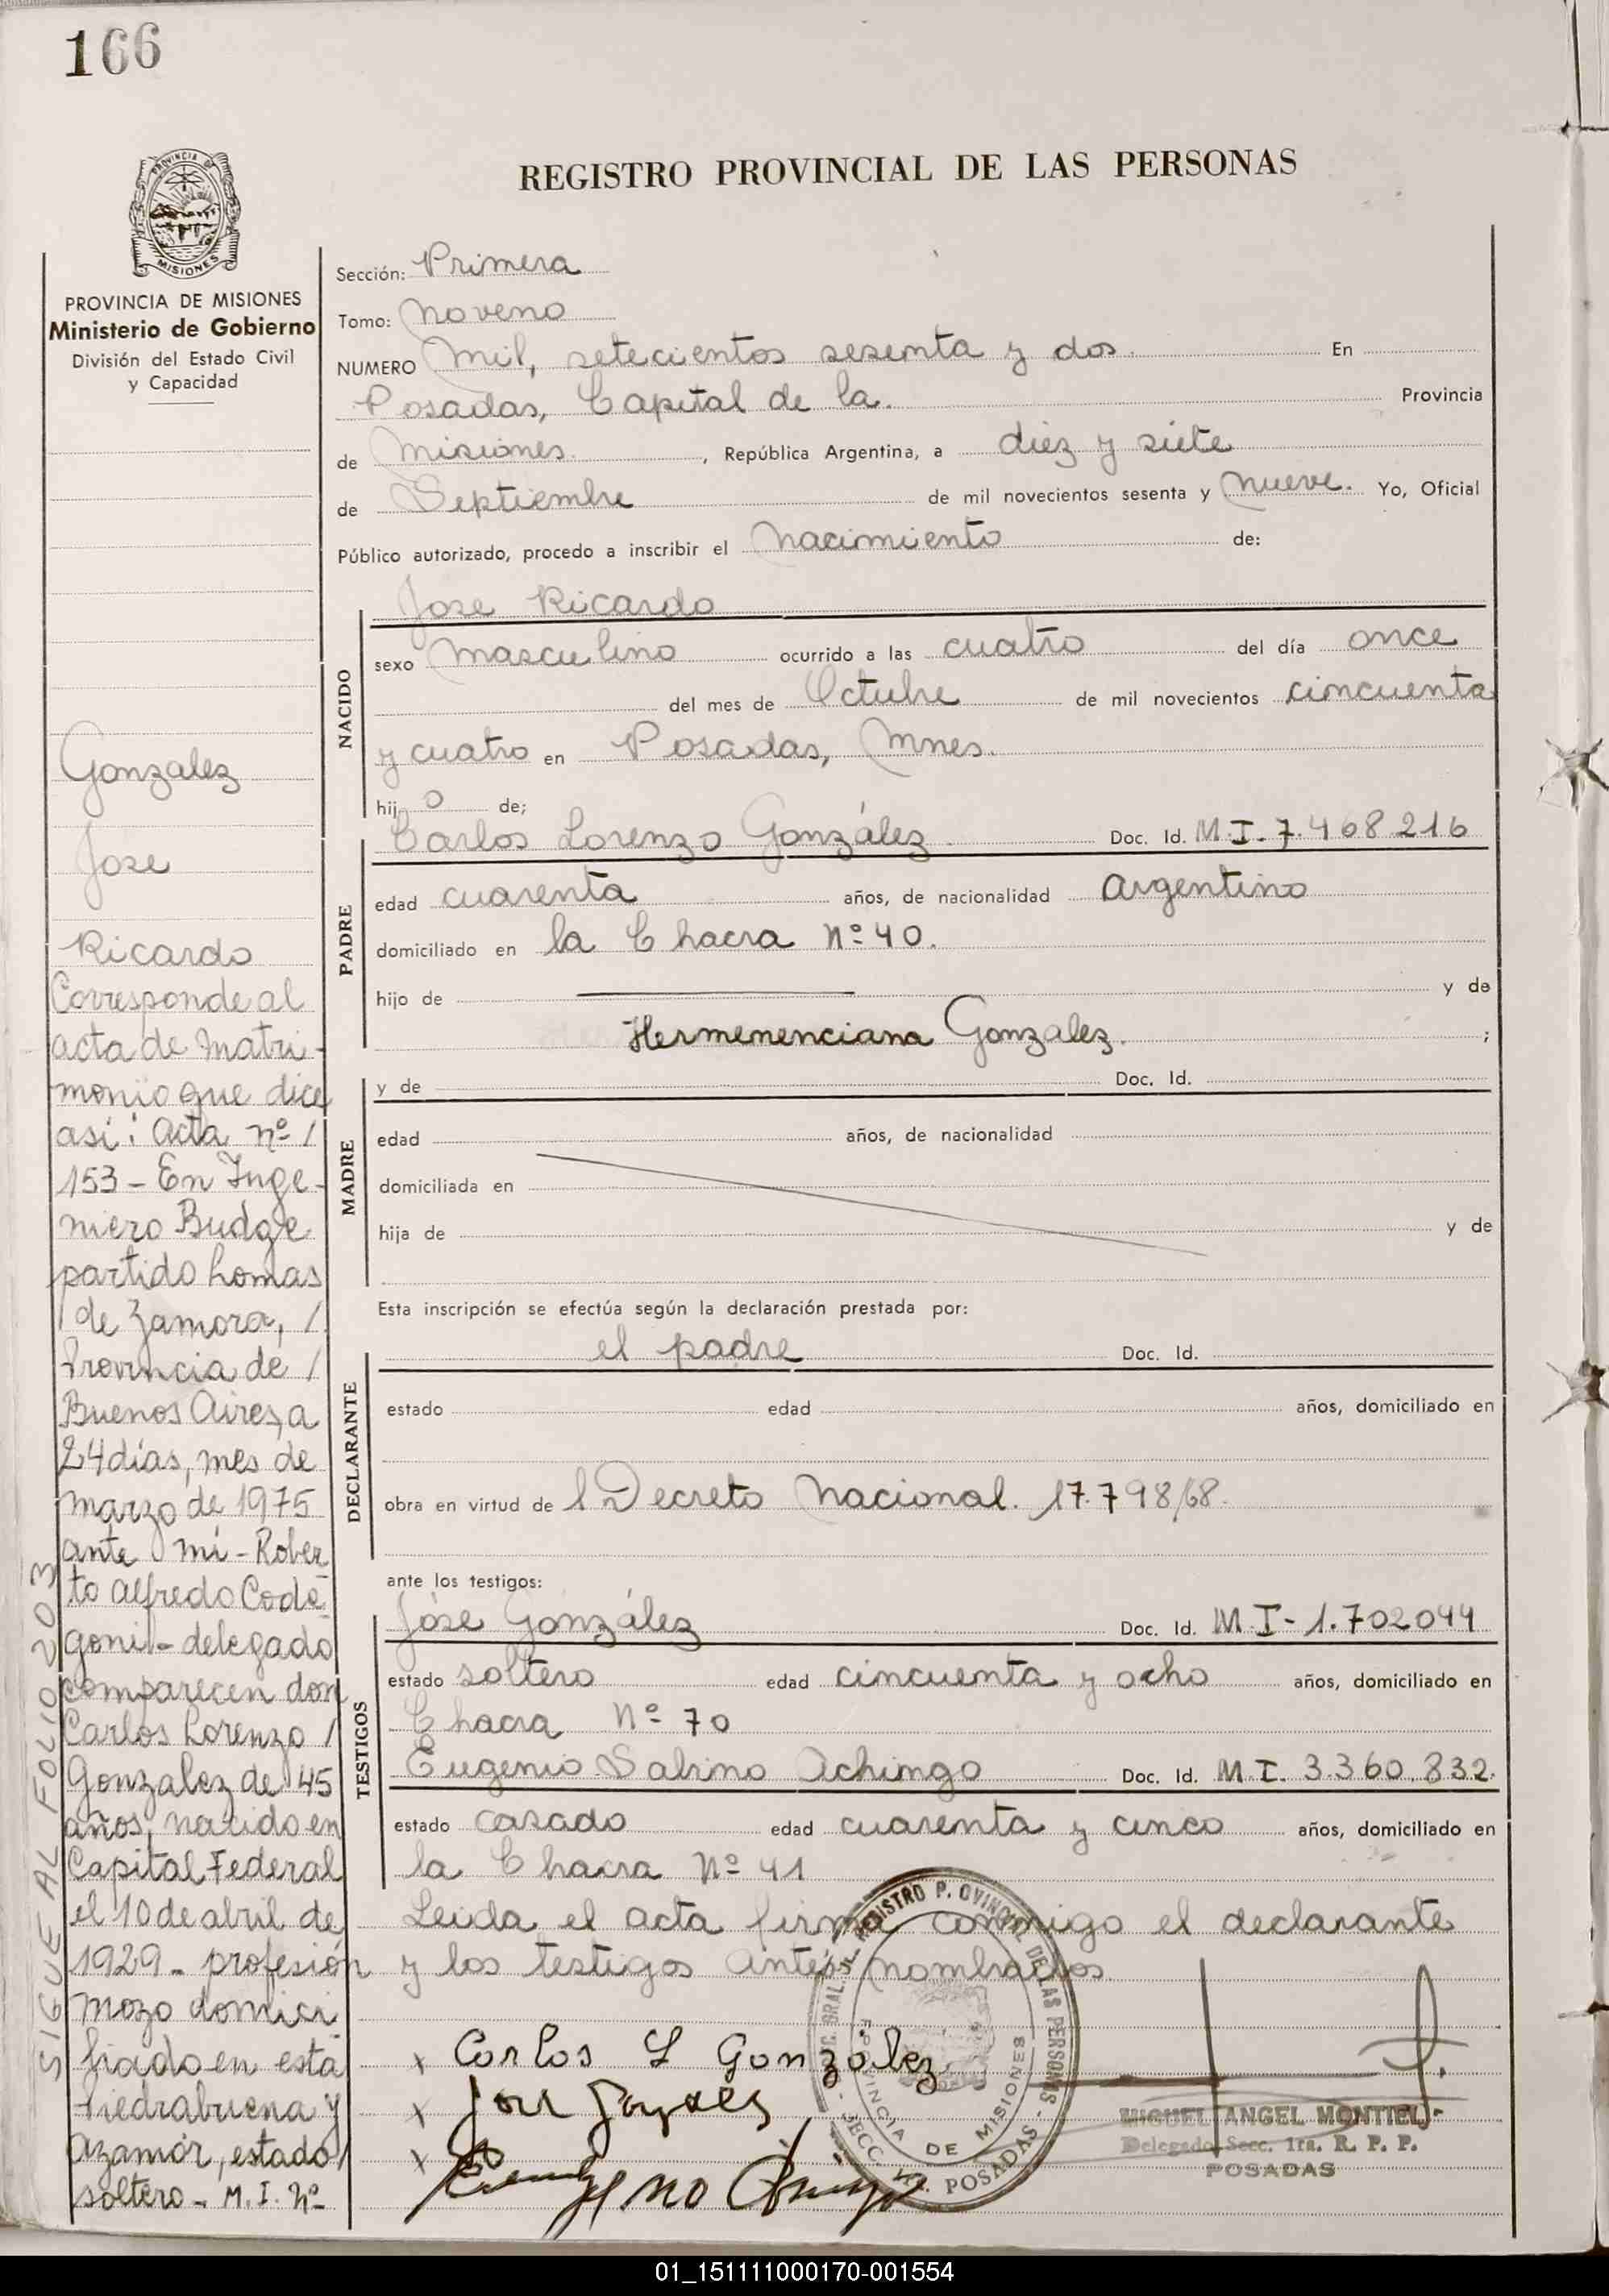 166
PROVINCIA DE
MISIONES
REGISTRO PROVINCIAL DE LAS PERSONAS
PROVINCIA DE MISIONES
Ministerio de Gobierno
División del Estado Civil
y Capacidad
Gonzalez
Jose
Ricardo
Corresponde al
acta de Matri-
monio que dice
asi: Acta nº /
153 - En Inge-
niero Budge
partido Lomas
de Zamora, /
Provincia de /
Buenos Aires, a
24 días, mes de
marzo de 1975
ante mí - Rober-
to Alfredo Code-
goni - delegado
comparecen don
Carlos Lorenzo /
Gonzalez de 45
años, nacido en
Capital Federal
el 10 de abril de
1929 - profesión
mozo domici
liado en esta
Piedrabuena y
Azamor, estado /
soltero - M. I. Nº
SIGUE AL FOLIO 203
Sección: Primera
Tomo: Noveno
NUMERO Mil, setecientos sesenta y dos. En
Posadas, Capital de la. Provincia
de Misiones , República Argentina, a diez y siete
de Septiembre de mil novecientos sesenta y Nueve. Yo, Oficial
Público autorizado, procedo a inscribir el Nacimiento de:
Jose Ricardo
NACIDO
sexo Masculino ocurrido a las cuatro del día once
del mes de Octubre de mil novecientos cincuenta
y cuatro en Posadas, Mnes.
hijo de;
PADRE
Carlos Lorenzo González Doc. Id. M.I-7.468.216
edad cuarenta años, de nacionalidad Argentino
domiciliado en la Chacra Nº 40.
hijo de y de
Hermenenciana Gonzalez. ;
MADRE
y de Doc. Id.
edad años, de nacionalidad
domiciliada en
hija de y de
Esta inscripción se efectúa según la declaración prestada por:
DECLARANTE
el padre Doc. Id.
estado edad años, domiciliado en
obra en virtud de l Decreto Nacional. 17.798/68.
ante los testigos:
TESTIGOS
Jóse González Doc. Id. M.I-1.702044
estado soltero edad cincuenta y ocho años, domiciliado en
Chacra Nº 70
Eugenio Sabino Achingo Doc. Id. M.I. 3.360.832.
estado casado edad cuarenta y cinco años, domiciliado en
la Chacra Nº 41
Leida el acta firma conmigo el declarante
y los testigos antes nombrados.
x Carlos L González
x
x
PROVINCIA DE MISIONES
POSADAS
MIGUEL ANGEL MONTIEL
Delegado Secc. 1ra. R. P. P.
POSADAS
01_151111000170-001554